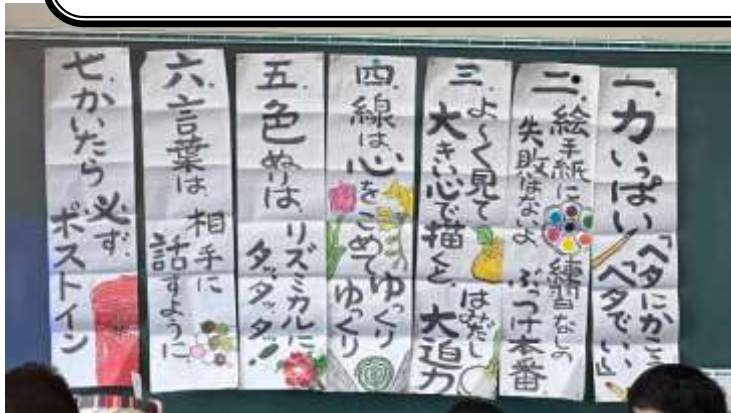 一.力いっぱい
「ヘタにかこう
「ヘタでいい」
二.絵手紙に練習なしの
失敗はないよ ぶっつけ本番
三.よ〜く見て はみだし
大きい心で描くと、大迫力
四.線は、心をこめてゆっくり
ゆっくり
五.色ぬりは、リズミカルに、
タッタッタ!
六.言葉は、相手に
話すように
七.かいたら必ず、
ポストイン